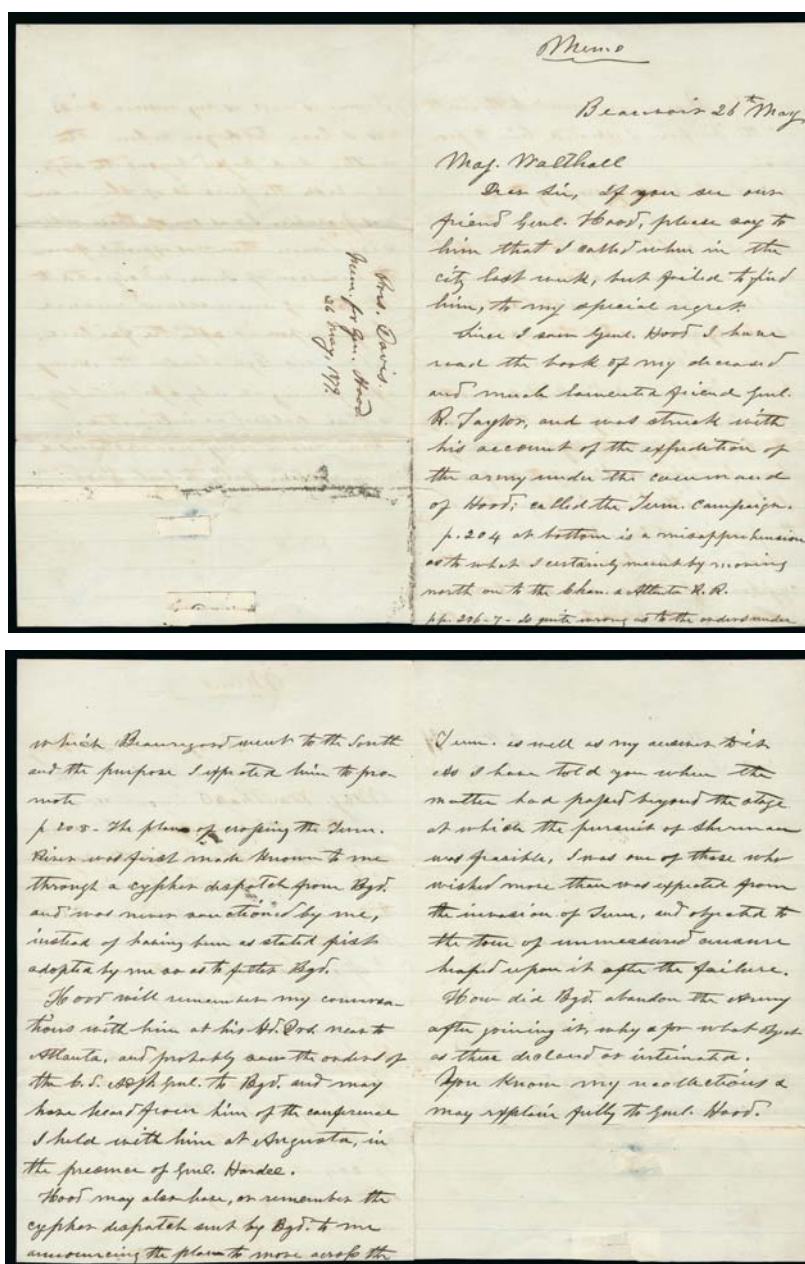 Memo
Beauvoir 26th May
Maj. Walthall
Dear Sir, If you see our
friend Genl. Hood, please say to
him that I called when in the
city last week, but failed to find
him, to my special regret.
Since I saw Genl. Hood I have
read the book of my deceased
and much lamented friend Genl.
R. Taylor, and was struck with
his account of the expedition of
the army under the command
of Hood; called the Tenn. Campaign.
p. 204 at bottom is a misapprehension
as to what I certainly meant by moving
north on to the Chat. & Atlanta R. R.
pp. 206-7- Is quite wrong as to the orders under
Pres. Davis.
Mem. for Gen. Hood
26 May, 1879
which Beauregard went to the South
and the purpose I expected him to pro-
mote
p 208- The plan of crossing the Tenn.
River was first made known to me
through a cypher dispatch from Bgd.
and was never sanctioned by me,
instead of having been as stated first
adopted by me so as to fetter Bgd.
Hood will remember my conversa-
tions with him at his Hd. Qrs. near to
Atlanta, and probably saw the orders of
the C.S. Adjt Genl. to Bgd. and may
have heard from him of the conference
I held with him at Augusta, in
the presence of Genl. Hardee.
Hood may also have, or remember the
cypher dispatch sent by Bgd. to me
announcing the plan to move across the
Tenn. as well as my answer to it.
As I have told you when the
matter had passed beyond the stage
at which the pursuit of Sherman
was feasible, I was one of those who
wished more than was expected from
the invasion of Tenn, and objected to
the tone of unmeasured censure
heaped upon it after the failure.
How did Bgd. abandon the Army
after joining it, why & for what object
as then declared or intimated.
You know my recollections &
may explain fully to Genl. Hood.